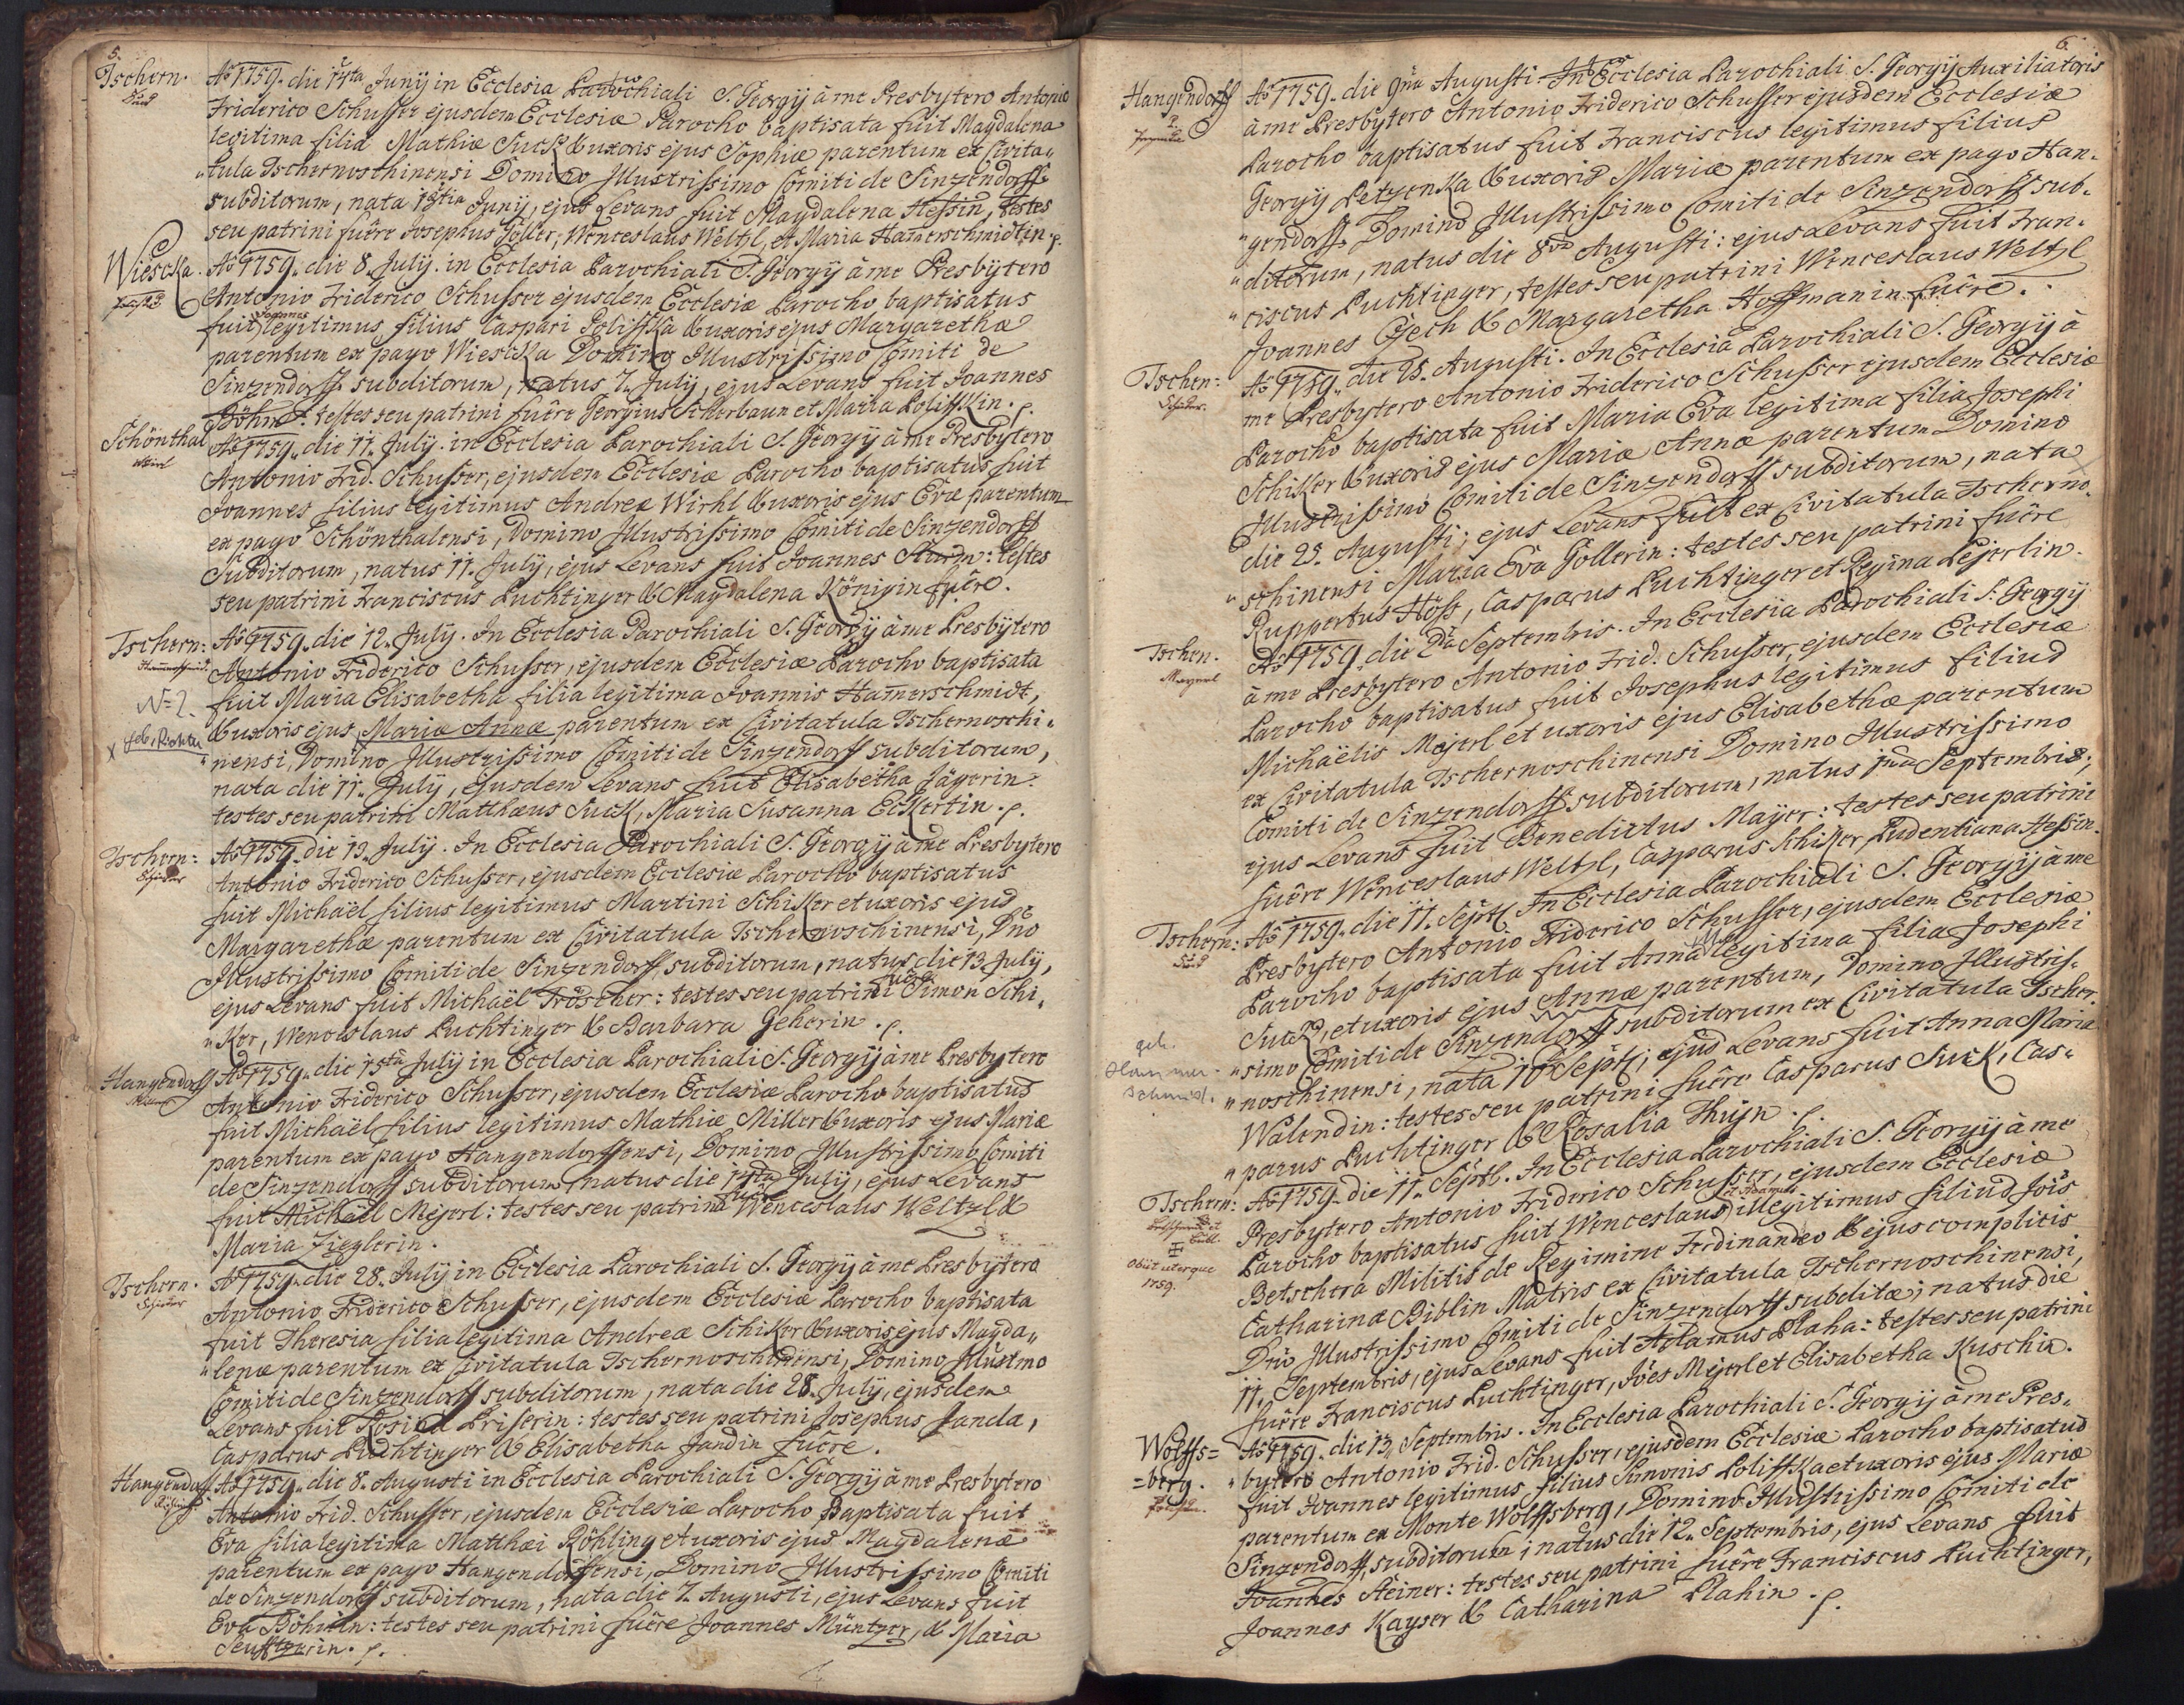 5.
Tschern.
Suck
Ao 1759. die 14ta Junÿ in Ecclesia Parochiali S. Georgÿ à me Presbytero Antonio
Friderico Schusser ejusdem Ecclesiæ Parocho baptisata fuit Magdalena
legitima filia Mathiæ Suck & uxoris ejus Sophiæ parentum ex Civita„
„tula Tschernoschinensi Domino Illustrissimo Comiti de Sinzendorff
subditorum, nata 13tia Junÿ, ejus Levans fuit Magdalena Hessin, testes
seu patrini fuêre Josephus Goller, Wenceslaus Weltzl, et Maria Ham̄erschmidtin.
Wiescka.
Ao 1759. die 8. Julÿ. in Ecclesia Parochiali S. Georgÿ à me Presbÿtero
Antonio Friderico Schusser ejusdem Ecclesiæ Parocho baptisatus
Joannes
fuit legitimus filius Caspari Polifka & uxoris ejus Margarethæ
parentum ex pago Wiescka Domino Illustrissimo Comiti de
Sinzendorff subditorum, natus 7. Julÿ, ejus Levans fuit Joannes
Böhm: testes seu patrini fuêre Georgius Scherbaun et Maria Polifkin.
Schönthal
Wirl
Ao 1759. die 11. Julÿ. in Ecclesia Parochiali S. Georgÿ à me Presbÿtero
Antonio Frid. Schusser, ejusdem Ecclesiæ Parocho baptisatus fuit
Joannes filius legitimus Andreæ Wirhl & uxoris ejus Evæ parentum
ex pago Schönthalensi, Domino Illustrissimo Comiti de Sinzendorff
Subditorum, natus 11. Julÿ, ejus Levans fuit Joannes Sturm: testes
seu patrini Franciscus Luchtinger & Magdalena Königin fuêre.
Tschern:
Hammerschmidt.
N=2.
x geb. Richter
Ao 1759. die 12. Julÿ. In Ecclesia Parochiali S. Georgÿ à me Presbÿtero
Antonio Friderico Schusser, ejusdem Ecclesiæ Parocho baptisata
fuit Maria Elisabetha filia legitima Joannis Ham̄erschmidt,
& uxoris ejus, Mariæ Annæ parentum ex Civitatula Tschernoschi„
„nensi, Domino Illustrissimo Comiti de Sinzendorff subditorum,
nata die 11. Julÿ, ejusdem Levans fuit Elisabetha Jägerin:
testes seu patrini Matthæus Suck, Maria Susanna Eckertin.
Tschern:
Schicker
Ao 1759. die 13. Julÿ. In Ecclesia Parochiali S. Georgÿ à me Presbÿtero
Antonio Friderico Schusser, ejusdem Ecclesiæ Parocho baptisatus
fuit Michaël filius legitimus Martini Schiker et uxoris ejus
Margarethæ parentum ex Civitatula Tschernoschinensi, Dn̄o
Illustrissimo Comiti de Sinzendorff, subditorum, natus die 13. Julÿ,
ejus Levans fuit Michaël Tröscher: testes seu patrini fuêre Simon Schi„
„Ker, Wenceslaus Luchtinger & Barbara Geherin.
Hangendorff
Miller
Ao 1759. die 15ta Julÿ in Ecclesia Parochiali S. Georgÿ à me Presbytero
Antonio Friderico Schusser, ejusdem Ecclesiæ Parocho baptisatus
fuit Michaël filius legitimus Mathiæ Miller & uxoris ejus Mariæ
parentum ex pago Hangendorffensi, Domino Illustrissimo Comiti
de Sinzendorff subditorum, natus die 14ta Julÿ, ejus Levans
fuit Michaël Mejerl: testes seu patrini fuêre Wenceslaus Weltzl &
Maria Zieglerin.
Tschern.
Schicker
Ao 1759. die 28. Julÿ in Ecclesia Parochiali S. Georgÿ à me Presbÿtero
Antonio Friderico Schusser, ejusdem Ecclesiæ Parocho baptisata
fuit Theresia filia legitima Andreæ Schiker & uxoris ejus Magda„
„lenæ parentum ex Civitatula Tschernoschinensi, Domino Illustmo
Comiti de Sinzendorff subditorum, nata die 28. Julÿ, ejusdem
Levans fuit Rosina Priserin: testes seu patrini Josephus Janda,
Casparus Luchtinger & Elisabetha Jandin fuêre.
Hangendorff
Röhling
Ao 1759. die 8. Augusti in Ecclesia Parochiali S. Georgÿ à me Presbÿtero
Antonio Frid. Schusser, ejusdem Ecclesiæ Parocho Baptisata fuit
Eva filia legitima Matthæi Röhling et uxoris ejus Magdalenæ
parentum ex pago Hangendorffensi, Domino Illustrissimo Comiti
de Sinzendorff subditorum, nata die 7. Augusti, ejus Levans fuit
Eva Böhmin: testes seu patrini fuêre Joannes Müntzer, & Maria
6.
Hangendorff
Ao 1759. die 9na Augusti In Ecclesia Parochiali S. Georgÿ Auxiliatoris
à me Presbytero Antonio Friderico Schusser ejusdem Ecclesiæ
Parocho baptisatus fuit Franciscus legitimus filius
Georgÿ Petzenka & uxoris Mariæ parentum ex pago Han„
„gendorff Domino Illustrissimo Comiti de Sinzendorff sub„
„ditorum, natus die 8va Augusti: ejus Levans fuit Fran„
„ciscus Luchtinger, testes seu patrini Wenceslaus Weltzl
Joannes Czech & Margaretha Hoffmanin fuêre.
Tschern:
Schicker.
Ao 1759. die 25. Augusti. In Ecclesia Parochiali S. Georgÿ à
me Presbytero Antonio Friderico Schusser ejusdem Ecclesiæ
Parocho baptisata fuit Maria Eva legitima filia Josephi
Schiker & uxoris ejus Mariæ Annæ parentum Domino
Illustrissimo Comiti de Sinzendorff subditorum, nata
die 25. Augusti; ejus Levans fuit ex Civitatula Tscherno„
„schinensi Maria Eva Gollerin: testes seu patrini fuêre
Ruppertus Höss, Casparus Luchtinger et Regina Lejerlin.
Tschern.
Ao 1759. die 2da Septembris. In Ecclesia Parochiali S. Georgÿ
à me Presbytero Antonio Frid. Schusser, ejusdem Ecclesiæ
Parocho baptisatus fuit Josephus legitimus filius
Michaëlis Majerl et uxoris ejus Elisabethæ parentum
ex Civitatula Tschernoschinensi Domino Illustrissimo
Comiti de Sinzendorff subditorum, natus 1ma Septembris;
ejus Levans fuit Benedictus Mayer: testes seu patrini
fuêre Wenceslaus Weltzl, Casparus Schiker, Pudentiana Hessin.
Tschern:
Suck
geb.
Hammer-
schmidt.
Ao 1759. die 11. Septb. In Ecclesia Parochiali S. Georgÿ à me
Presbytero Antonio Friderico Schusser, ejusdem Ecclesiæ
Parocho baptisata fuit Anna legitima filia Josephi
Suck, et uxoris ejus Annæ parentum, Domino Illustris„
„simo Comiti de Sinzendorff subditorum ex Civitatula Tscher„
„noschinensi, nata 10 Septb; ejus Levans fuit Anna Maria
Walendin: testes seu patrini fuêre Casparus Suck, Cas„
„parus Luchtinger & Rosalia Thüjn.
Tschern:
Obiit uterque
1759.
Ao 1759. die 11. Septb. In Ecclesia Parochiali S. Georgÿ à me
Presbytero Antonio Friderico Schusser, ejusdem Ecclesiæ
et Adamus
Parocho baptisatus fuit Wenceslaus illegitimus filius Jois
Betschera Militis de Regimine Ferdinandeo & ejus complicis
Catharinæ Biblin Matris ex Civitatula Tschernoschinensi,
Dn̄o Illustrissimo Comiti de Sinzendorff subditæ; natus die
11. Septembris, ejus Levans fuit Adamus Plaha: testes seu patrini
fuêre Franciscus Luchtinger, Joes Mejerl et Elisabetha Kuschin.
Wolffs=
=berg.
Ao 1759. die 13. Septembris. In Ecclesia Parochiali S. Georgÿ à me Pres„
„bytero Antonio Frid. Schusser, ejusdem Ecclesiæ Parocho baptisatus
fuit Joannes legitimus filius Simonis Polifka et uxoris ejus Mariæ
parentum ex Monte Wolffsberg, Domino Illustrissimo Comiti de
Sinzendorff, subditorum; natus die 12. Septembris, ejus Levans fuit
Joannes Steiner: testes seu patrini fuêre Franciscus Luchtinger,
Joannes Kayser & Catharina Plahin.